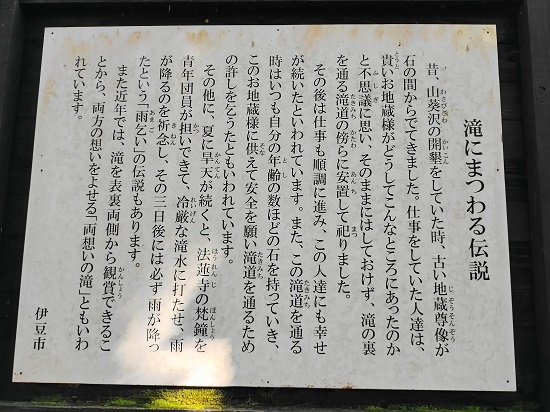 滝にまつわる伝説
昔、山葵沢の開墾をしていた時、古い地蔵尊像が
石の間からでてきました。仕事をしていた人達は、
貴いお地蔵様がどうしてこんなところにあったのか
と不思議に思い、そのままにはしておけず、滝の裏
を通る滝道の傍らに安置して祀りました。
その後は仕事も順調に進み、この人達にも幸せ
が続いたといわれています。また、この滝道を通る
時はいつも自分の年齢の数ほどの石を持っていき、
このお地蔵様に供えて安全を願い滝道を通るため
の許しを乞うたともいわれています。
その他に、夏に旱天が続くと、法蓮寺の梵鐘を
青年団員が担いできて、冷厳な滝水に打たせ、雨
が降るのを祈念し、その三日後には必ず雨が降っ
たという「雨乞い」の伝説もあります。
また近年では、滝を表裏両側から観賞できるこ
とから、両方の想いをよせる「両想いの滝」ともいわ
れています。
伊豆市